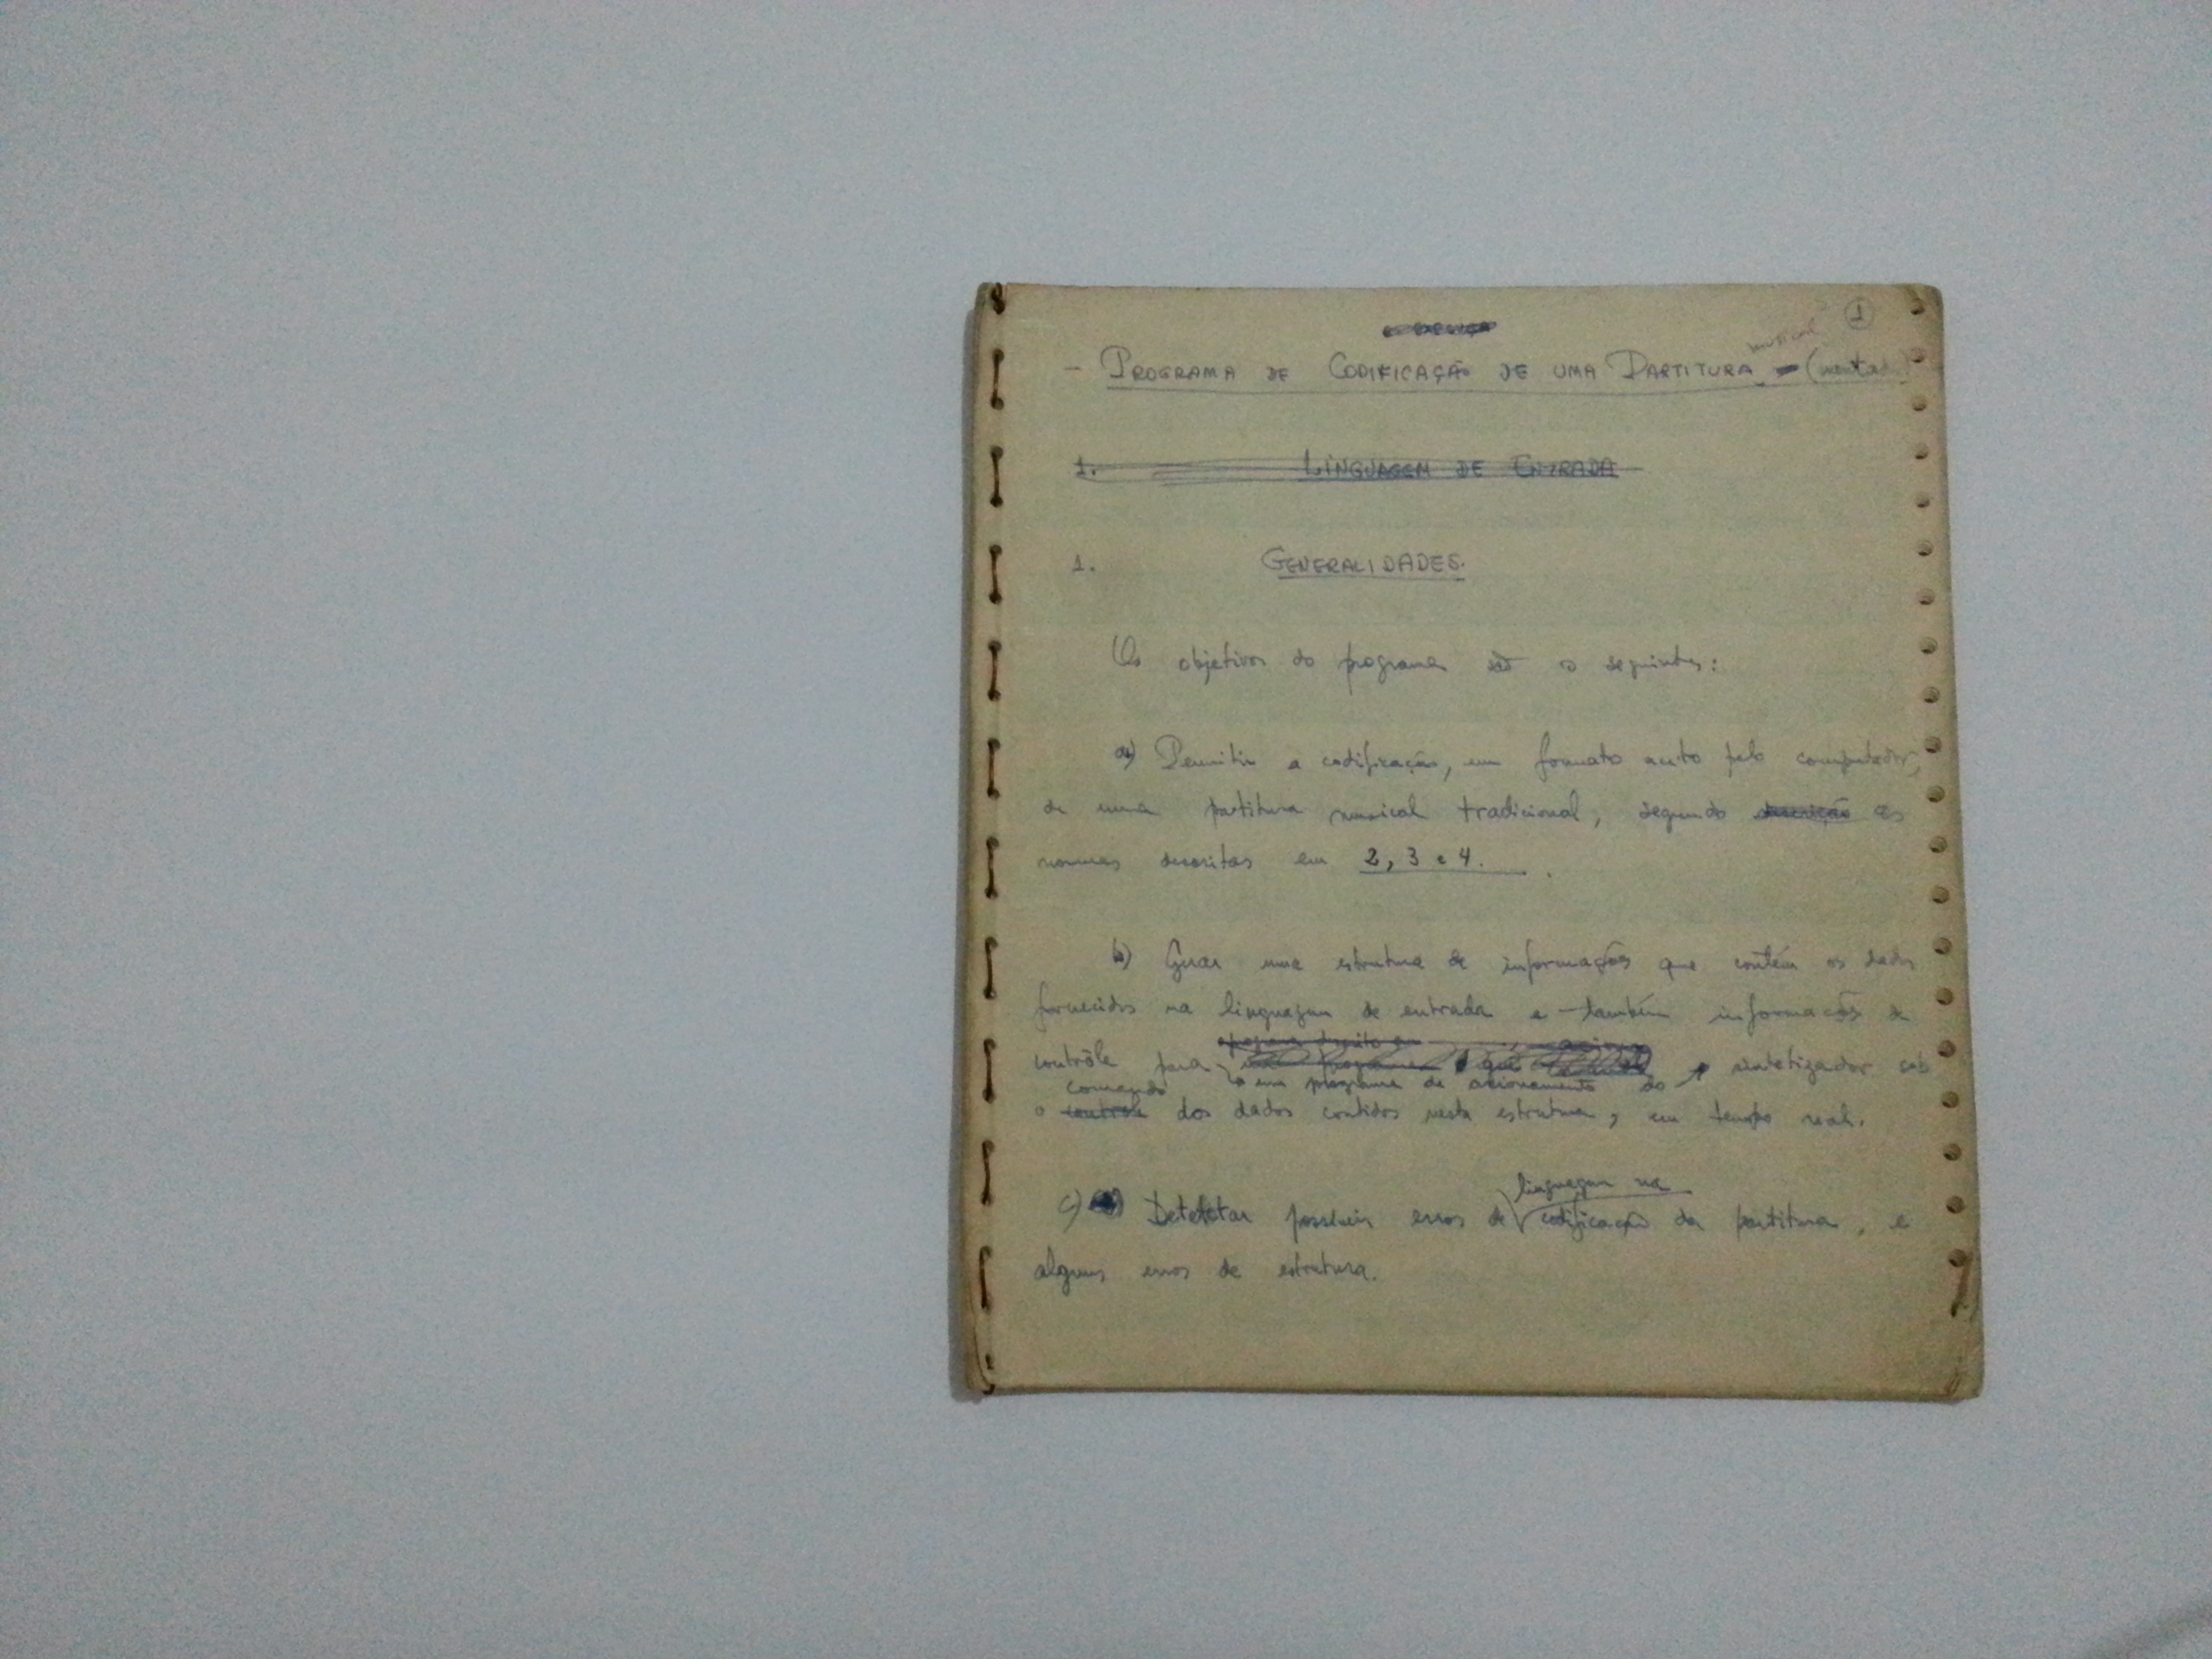 1
musical
- PROGRAMA DE CODIFICAÇÃO DE UMA PARTITURA
1. LINGUAGEM DE ENTRADA
1. GENERALIDADES.
Os objetivos do programa são os seguintes:
a) Permitir a codificação, em formato aceito pelo computador,
de uma partitura musical tradicional, segundo as
normas descritas em 2, 3 e 4.
b) Gerar uma estrutura de informações que contém os dados
fornecidos na linguagem de entrada e também informações de
contrôle para o em programa de acionamento do sintetizador sob
comando
o controle dos dados contidos nesta estrutura, em tempo real.
linguagem na
c) Detetar possíveis erros de codificação da partitura, e
alguns erros de estrutura.